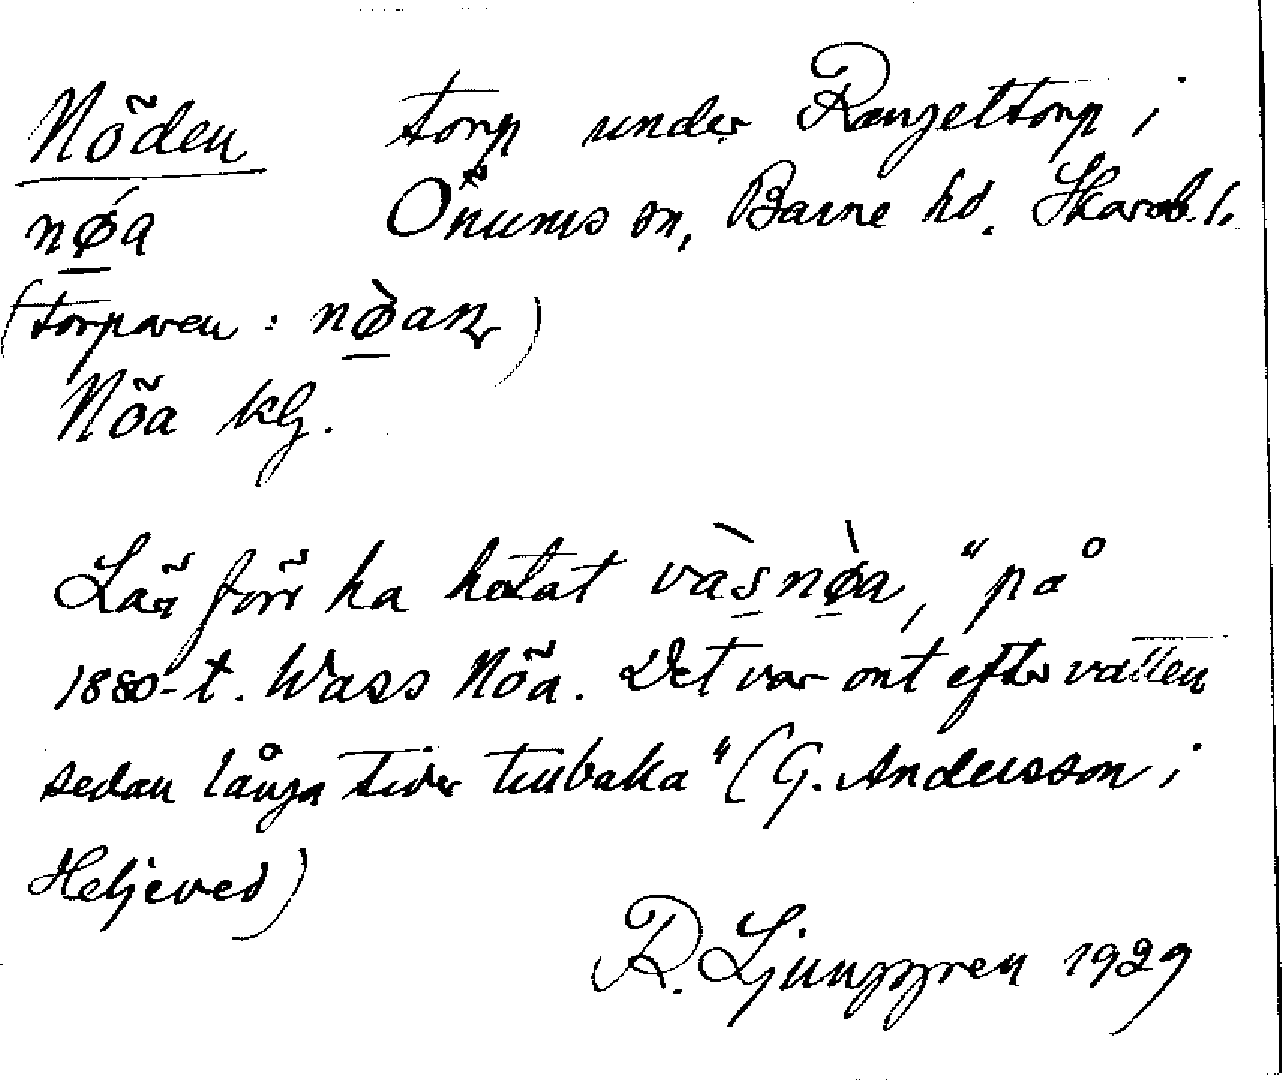 Nöden torp under Rangeltorp i
nø̀a Önums sn, Barne hd. Skarab. l.
(torparen : nø̀an)
Nöa kg.
Lär förr ha hetat vàsnø̀a, "på
1880-t. Wass Nöa. Det var ont efter vatten
sedan långa tider tillbaka" (G. Andersson i
Heljeved)
R. Ljunggren 1929